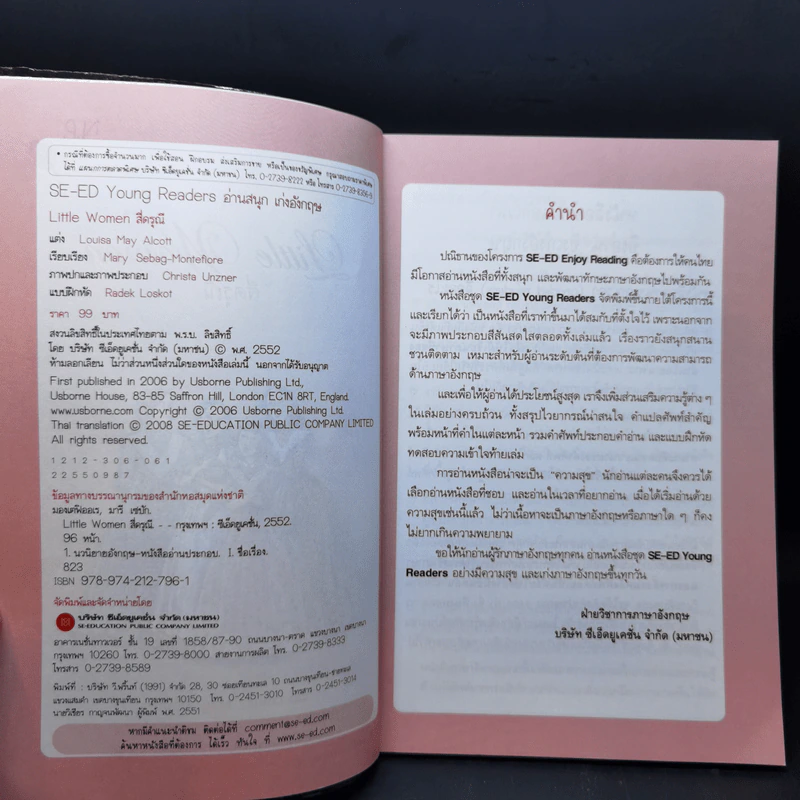 • กรณีที่ต้องการซื้อจำนวนมาก เพื่อใช้สอน ฝึกอบรม ส่งเสริมการขาย หรือเป็นของขวัญพิเศษ กรุณาสอบถามราคาพิเศษ
ได้ที่ แผนกการตลาดพิเศษ บริษัท ซีเอ็ดยูเคชั่น จำกัด (มหาชน) โทร. 0-2739-8222 หรือ โทรสาร 0-2739-8356-9
SE-ED Young Readers อ่านสนุก เก่งอังกฤษ
Little Women สี่ดรุณี
แต่ง Louisa May Alcott
เรียบเรียง Mary Sebag-Montefiore
ภาพปกและภาพประกอบ Christa Unzner
แบบฝึกหัด Radek Loskot
ราคา 99 บาท
สงวนลิขสิทธิ์ในประเทศไทยตาม พ.ร.บ. ลิขสิทธิ์
โดย บริษัท ซีเอ็ดยูเคชั่น จำกัด (มหาชน) © พ.ศ. 2552
ห้ามลอกเลียน ไม่ว่าส่วนหนึ่งส่วนใดของหนังสือเล่มนี้ นอกจากได้รับอนุญาต
First published in 2006 by Usborne Publishing Ltd.,
Usborne House, 83-85 Saffron Hill, London EC1N 8RT, England.
www.usborne.com Copyright © 2006 Usborne Publishing Ltd.
Thai translation © 2008 SE-EDUCATION PUBLIC COMPANY LIMITED
All rights reserved.
1 2 1 2 - 3 0 6 - 0 6 1
2 2 5 5 0 9 8 7
ข้อมูลทางบรรณานุกรมของสำนักหอสมุดแห่งชาติ
มองเตฟิออเร, มารี เซบัก.
Little Women สี่ดรุณี. - - กรุงเทพฯ : ซีเอ็ดยูเคชั่น, 2552.
96 หน้า.
1. นวนิยายอังกฤษ-หนังสืออ่านประกอบ. I. ชื่อเรื่อง.
823
ISBN 978-974-212-796-1
จัดพิมพ์และจัดจำหน่ายโดย
บริษัท ซีเอ็ดยูเคชั่น จำกัด (มหาชน)
SE-EDUCATION PUBLIC COMPANY LIMITED
อาคารเนชั่นทาวเวอร์ ชั้น 19 เลขที่ 1858/87-90 ถนนบางนา-ตราด แขวงบางนา เขตบางนา
กรุงเทพฯ 10260 โทร. 0-2739-8000 สายงานการผลิต โทร. 0-2739-8333
โทรสาร 0-2739-8589
พิมพ์ที่ : บริษัท วี.พริ้นท์ (1991) จำกัด 28, 30 ซอยเทียนทะเล 10 ถนนบางขุนเทียน-ชายทะเล
แขวงแสมดำ เขตบางขุนเทียน กรุงเทพฯ 10150 โทร. 0-2451-3010 โทรสาร 0-2451-3014
นายวิเชียร กาญจนพัฒนา ผู้พิมพ์ พ.ศ. 2551
หากมีคำแนะนำติชม ติดต่อได้ที่ comment@se-ed.com
ค้นหาหนังสือที่ต้องการ ได้เร็ว ทันใจ ที่ www.se-ed.com
คำนำ
ปณิธานของโครงการ SE-ED Enjoy Reading คือต้องการให้คนไทย
มีโอกาสอ่านหนังสือที่ทั้งสนุก และพัฒนาทักษะภาษาอังกฤษไปพร้อมกัน
หนังสือชุด SE-ED Young Readers จัดพิมพ์ขึ้นภายใต้โครงการนี้
และเรียกได้ว่า เป็นหนังสือที่เราทำขึ้นมาได้สมกับที่ตั้งใจไว้ เพราะนอกจาก
จะมีภาพประกอบสีสันสดใสตลอดทั้งเล่มแล้ว เรื่องราวยังสนุกสนาน
ชวนติดตาม เหมาะสำหรับผู้อ่านระดับต้นที่ต้องการพัฒนาความสามารถ
ด้านภาษาอังกฤษ
และเพื่อให้ผู้อ่านได้ประโยชน์สูงสุด เราจึงเพิ่มส่วนเสริมความรู้ต่าง ๆ
ในเล่มอย่างครบถ้วน ทั้งสรุปไวยากรณ์น่าสนใจ คำแปลศัพท์สำคัญ
พร้อมหน้าที่คำในแต่ละหน้า รวมคำศัพท์ประกอบคำอ่าน และแบบฝึกหัด
ทดสอบความเข้าใจท้ายเล่ม
การอ่านหนังสือน่าจะเป็น “ความสุข” นักอ่านแต่ละคนจึงควรได้
เลือกอ่านหนังสือที่ชอบ และอ่านในเวลาที่อยากอ่าน เมื่อได้เริ่มอ่านด้วย
ความสุขเช่นนี้แล้ว ไม่ว่าเนื้อหาจะเป็นภาษาอังกฤษหรือภาษาใด ๆ ก็คง
ไม่ยากเกินความพยายาม
ขอให้นักอ่านผู้รักภาษาอังกฤษทุกคน อ่านหนังสือชุด SE-ED Young
Readers อย่างมีความสุข และเก่งภาษาอังกฤษขึ้นทุกวัน
ฝ่ายวิชาการภาษาอังกฤษ
บริษัท ซีเอ็ดยูเคชั่น จำกัด (มหาชน)